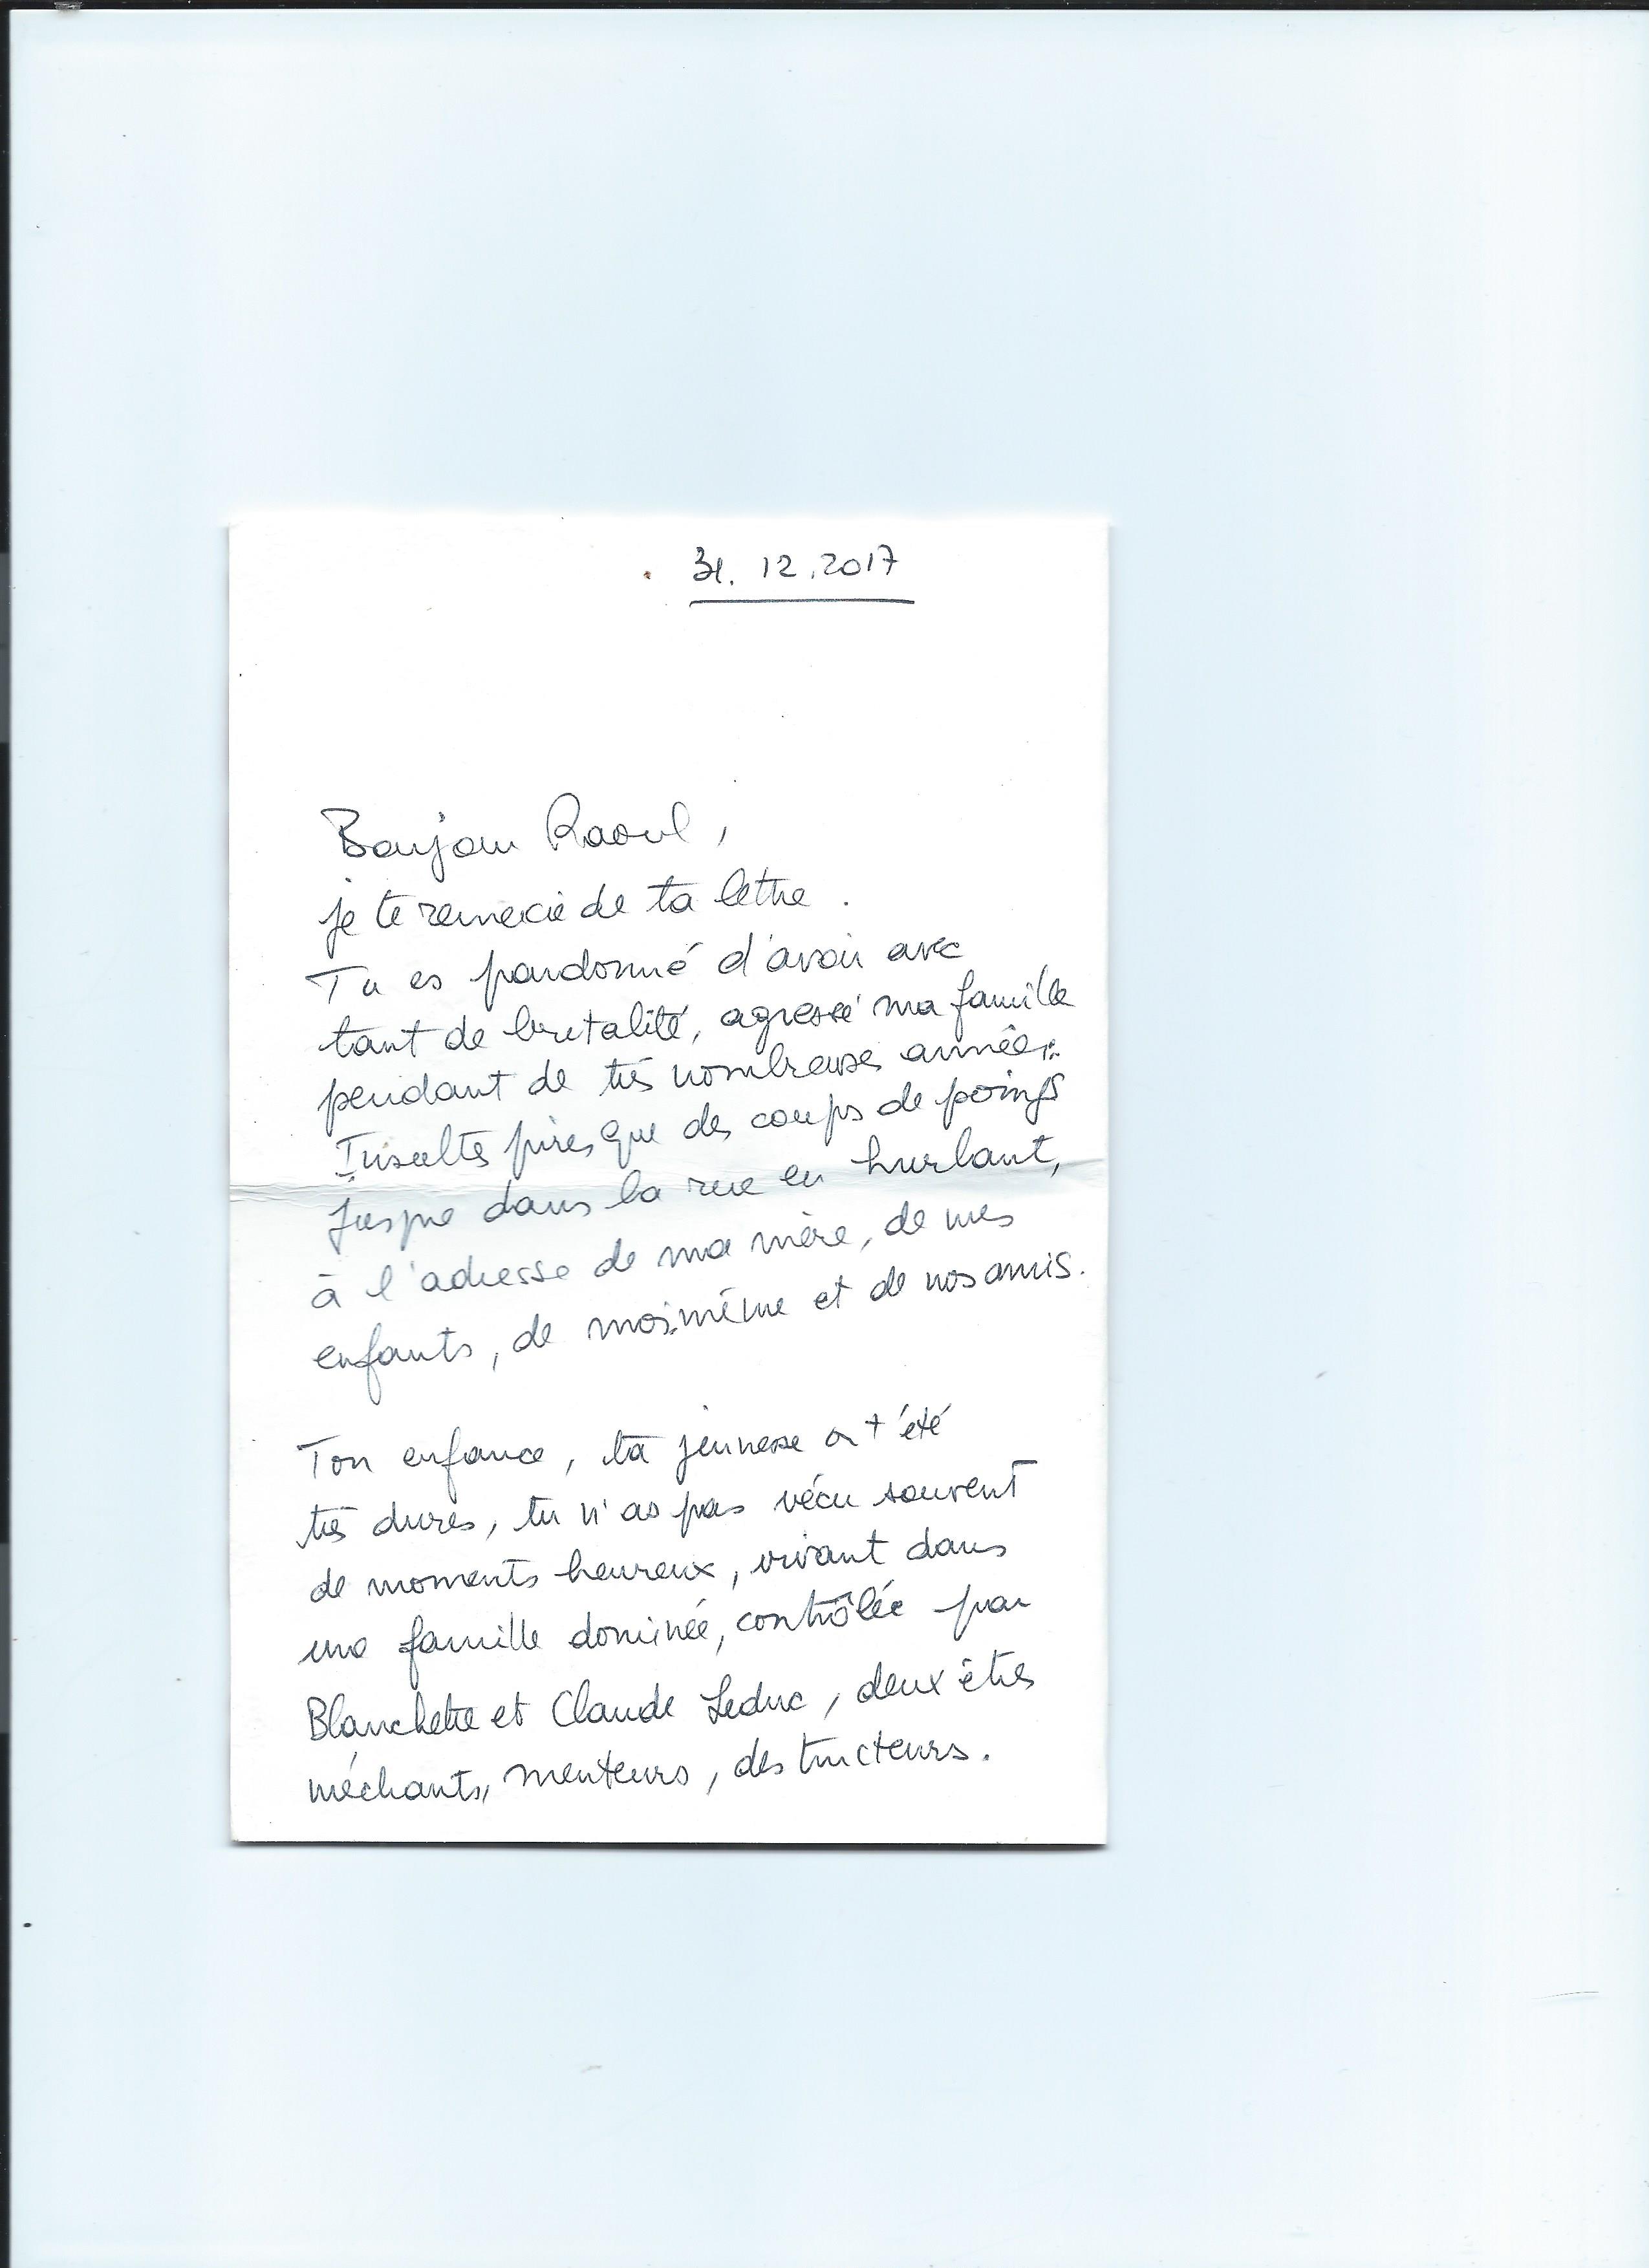 31.12.2017
Bonjour Raoul,
je te remercie de ta lettre.
Tu es pardonné d'avoir avec
tant de brutalité, agressé ma famille
pendant de très nombreuses années.
Insultes pires que des coups de poings
jusque dans la rue en hurlant,
à l'adresse de ma mère, de mes
enfants, de moi-même et de nos amis.
Ton enfance, ta jeunesse a t'été
très dures, tu n'as pas vécu souvent
de moments heureux, vivant dans
une famille dominée, contrôlée par
Blanchette et Claude Leduc, deux êtres
méchants, menteurs, destructeurs.